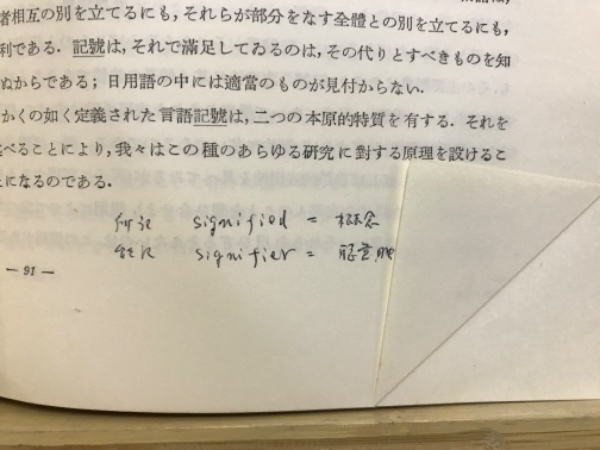 者相互の別を立てるにも，それらが部分をなす全體との別を立てるにも，
利である．記號は，それで滿足してゐるのは，その代りとすべきものを知
ぬからである；日用語の中には適當のものが見付からない．
かくの如く定義された言語記號は，二つの本原的特質を有する．それを
べることにより，我々はこの種のあらゆる研究に對する原理を設けるこ
になるのである．
所記 signified = 概念
能記 signifier = 聴覚映
— 91 —